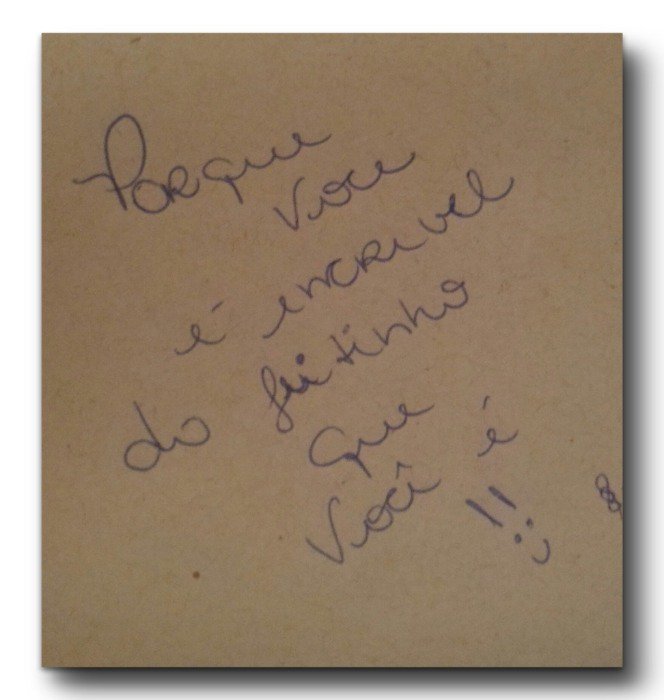 Porque
voce
é incrivel
do jeitinho
que
você é !! :)